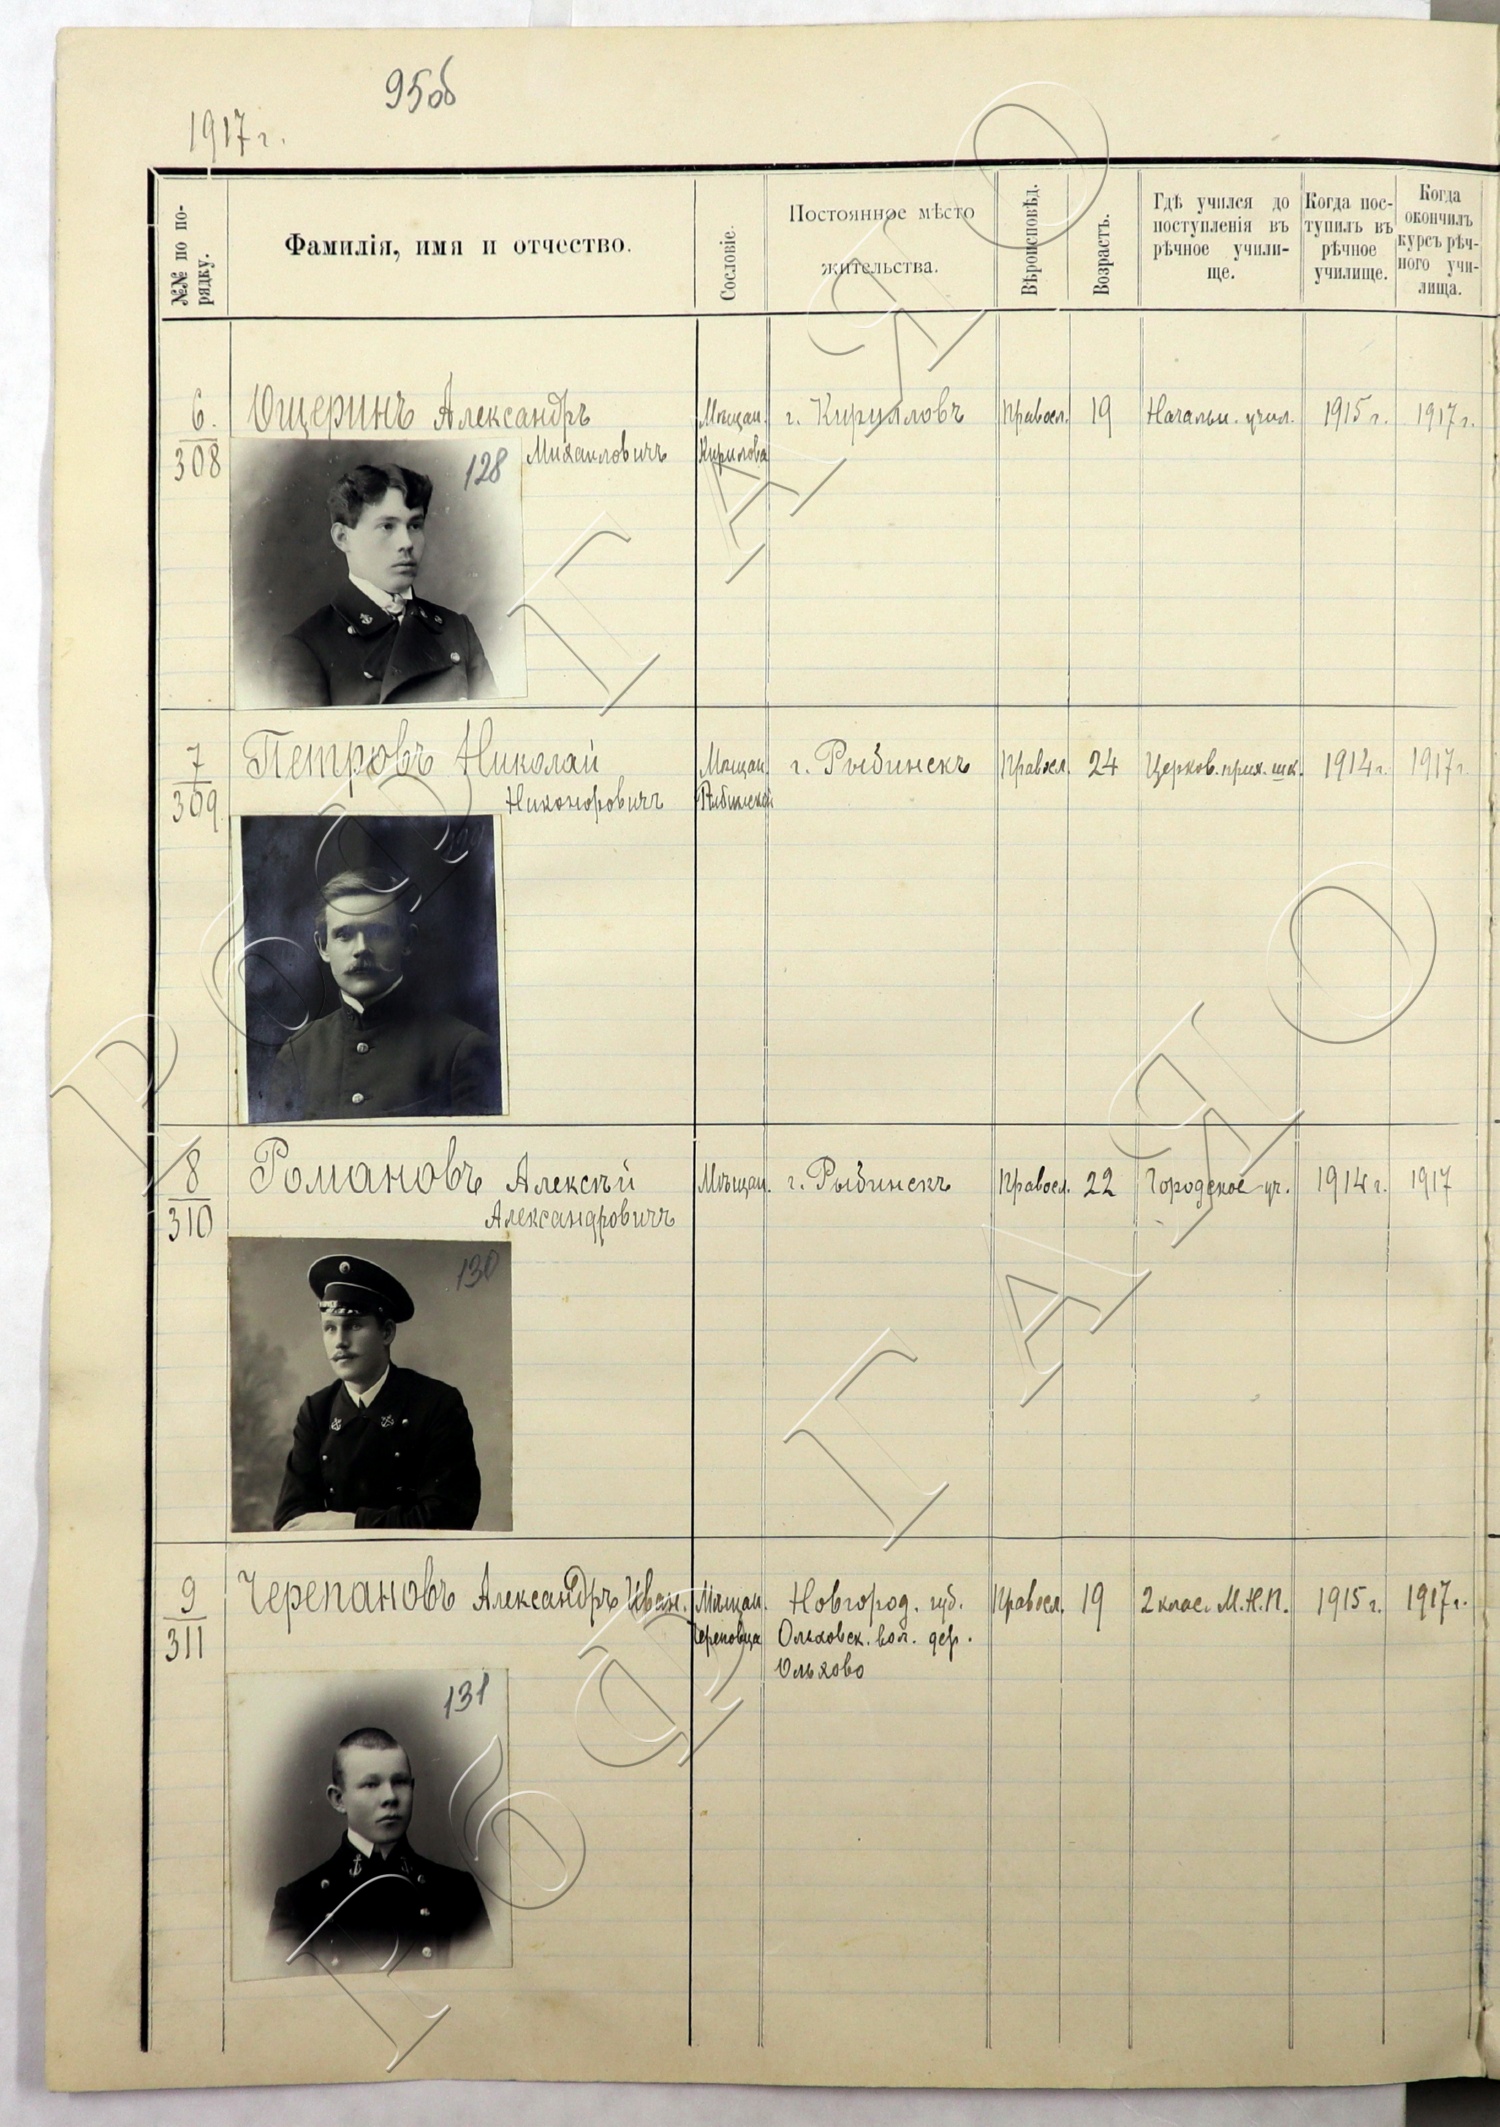 95об
1917 г.
№№ по по-
рядку.
Фамилія, имя и отчество.
Сословіе.
Постоянное мѣсто
жительства.
Вѣроисповѣд.
Возрастъ.
Гдѣ учился до
поступленія въ
рѣчное учили-
ще.
Когда пос-
тупилъ въ
рѣчное
училище.
Когда
окончилъ
курсъ рѣч-
ного учи-
лища.
6.
308
Ющеринъ Александръ
Михаиловичъ
128
Мѣщан.
Кирилова
г. Кирилловъ
Правосл.
19
Начальн. учил.
1915 г.
1917 г.
7
309
Петровъ Николай
Никоноровичъ
Мѣщан.
Рыбинской
г. Рыбинскъ
Правосл.
24
Церков. прих. шк.
1914 г.
1917 г.
8
310
Романовъ Алексѣй
Александровичъ
130
Мѣщан.
г. Рыбинскъ
Правосл.
22
Городское уч.
1914 г.
1917
9
311
Черепановъ Александръ Иван.
131
Мѣщан.
Череповца
Новгород. губ.
Ольховск. вол. дер.
Ольхово
Правосл.
19
2 клас. М.Н.П.
1915 г.
1917 г.
РбФ ГАЯО
РбФ ГАЯО